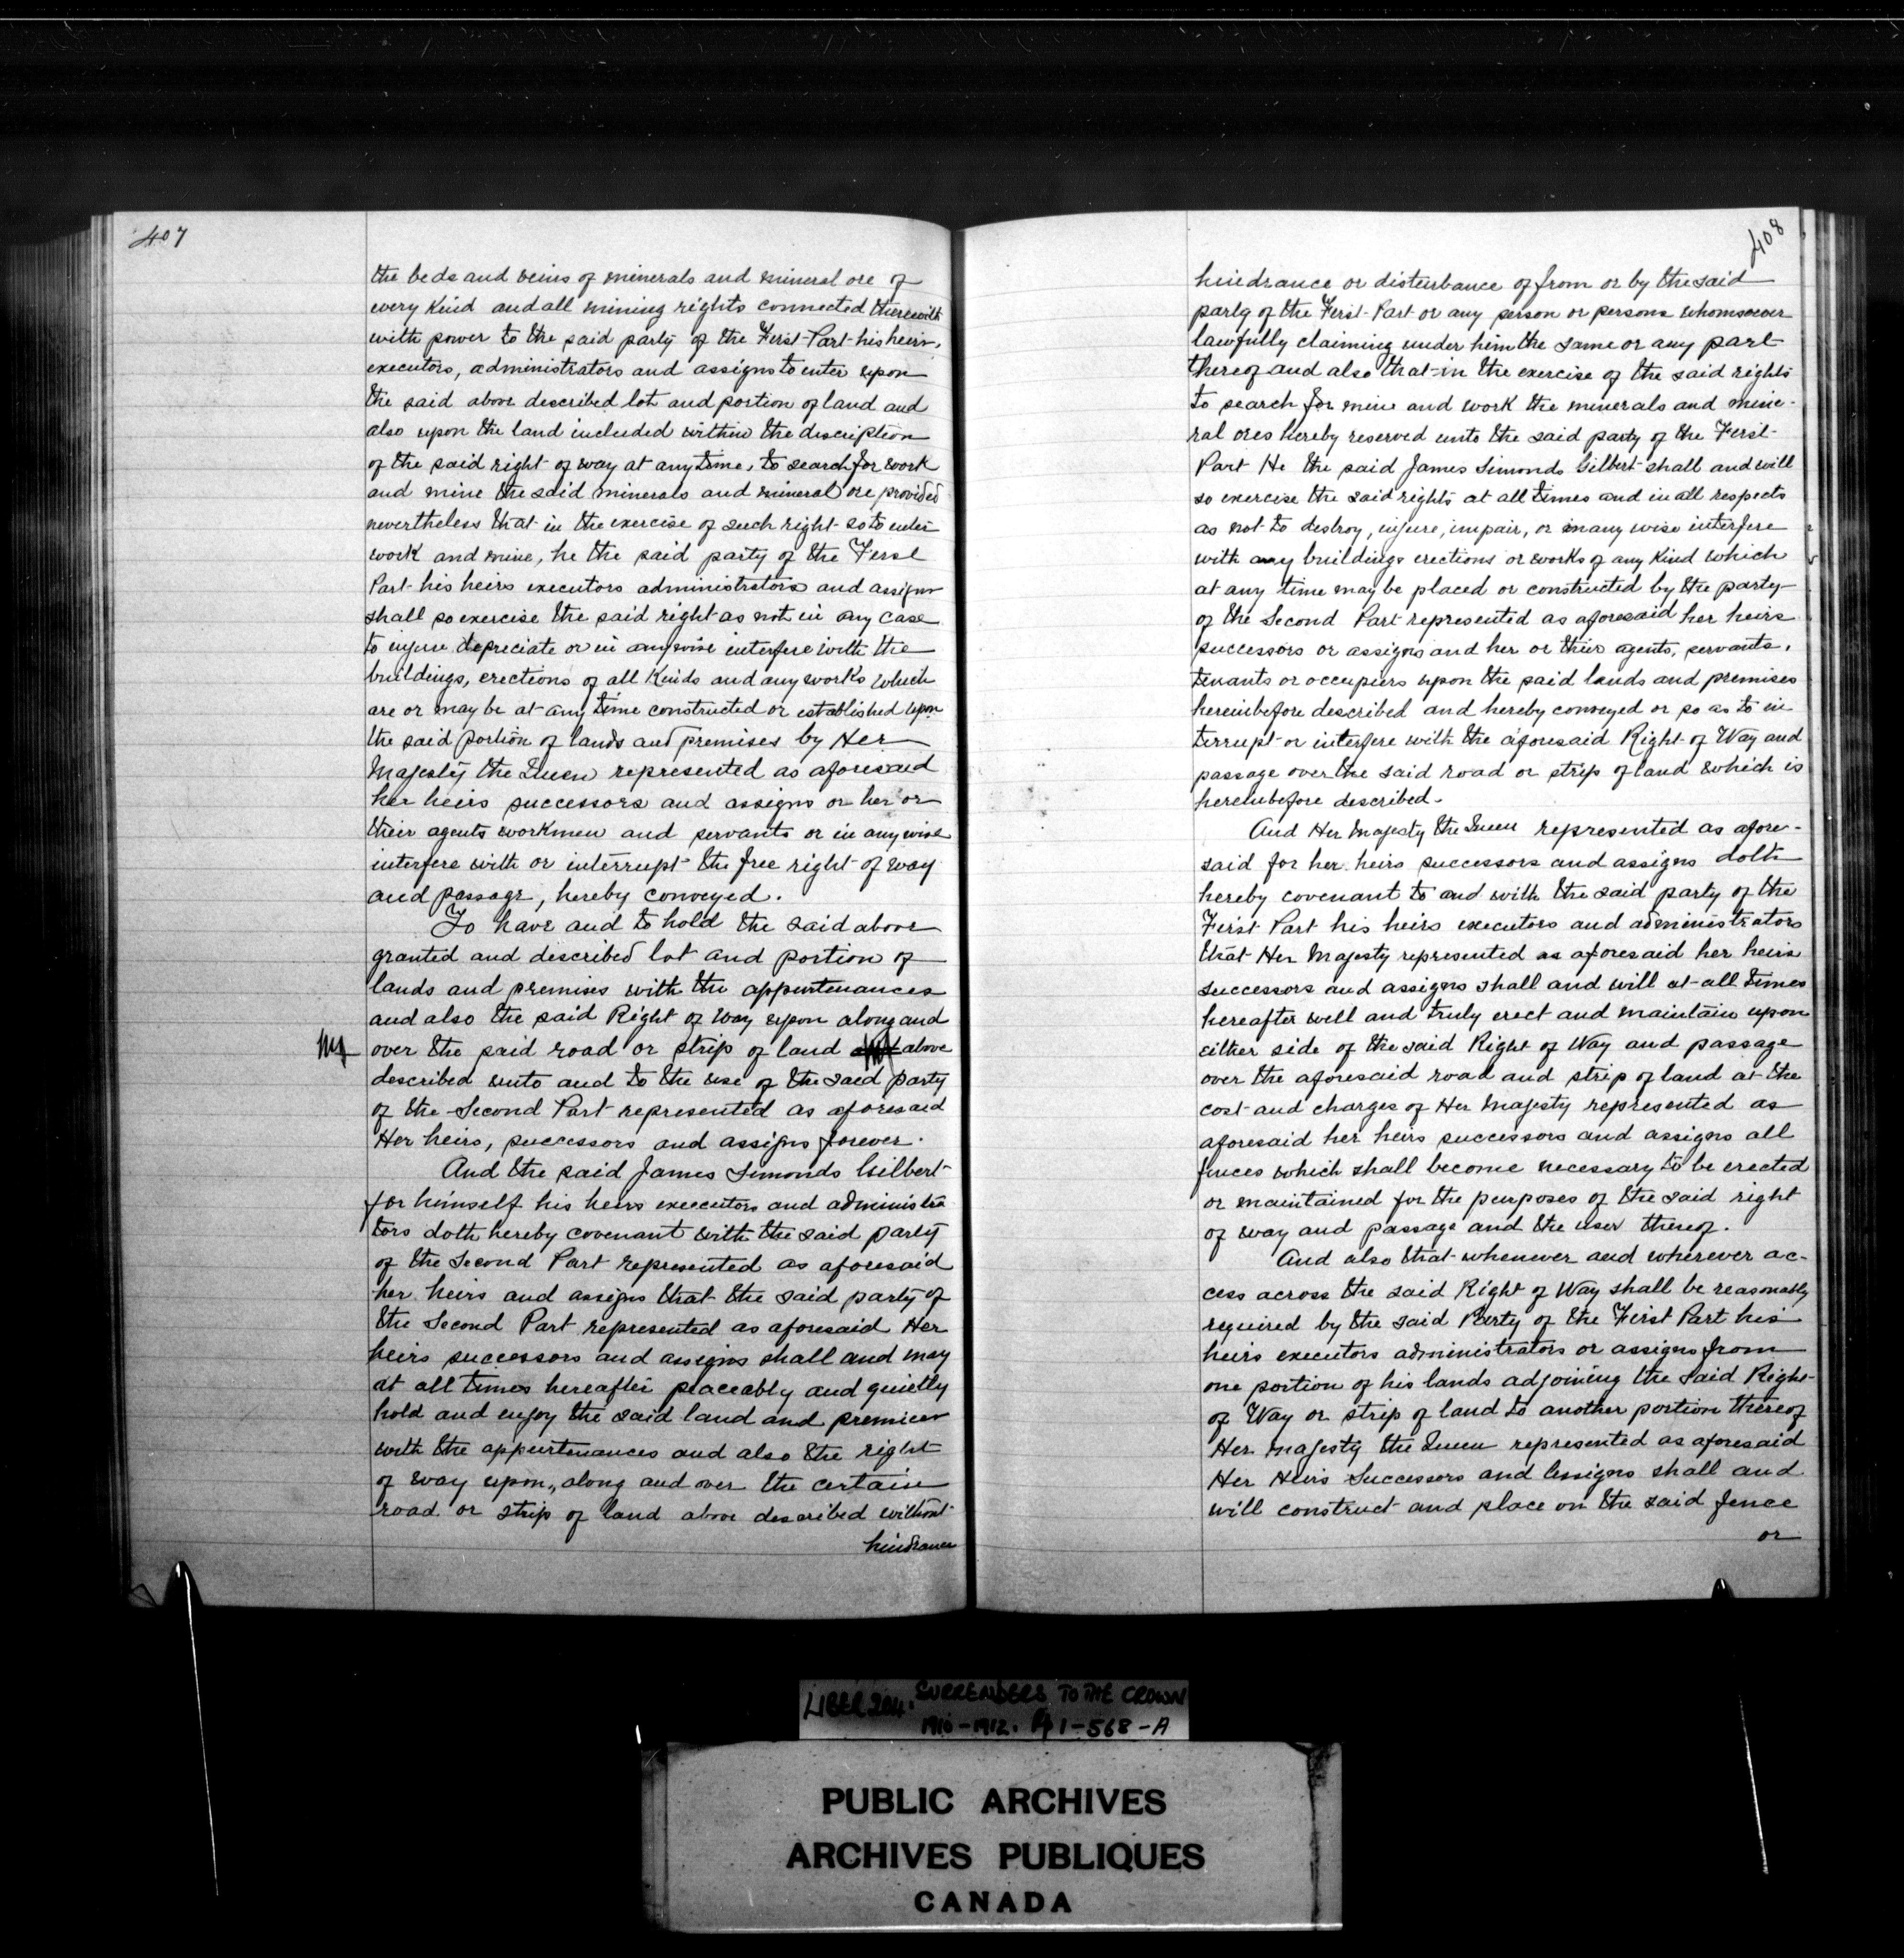 407
the beds and veins of minerals and mineral ore of
every kind and all mining rights connected therewith
with power to the said party of the First Part his heirs,
executors, administrators and assigns to enter upon
the said above described lot and portion of land and
also upon the land included within the discription
of the said right of way at any time, to search for work
and mine the said minerals and mineral ore provided
nevertheless that in the exercise of such right so to enter
work and mine, he the said party of the First
Part his heirs executors administrators and assigns
shall so exercise the said right as not in any case
to injure depreciate or in anywise interfere with the
buildings, erections of all kinds and any works which
are or may be at any time constructed or established upon
the said portion of lands and premises by Her
Majesty the Queen represented as aforesaid
her heirs successors and assigns or her or
their agents workmen and servants or in any wise
interfere with or interrupt the free right of way
and passage, hereby conveyed.
To have and to hold the said above
granted and described lot and portion of
lands and premises with the appurtenances
and also the said Right of way upon along and
over the said road or strip of land above
described unto and to the use of the said party
of the Second Part represented as aforesaid
Her heirs, successors and assigns forever.
And the said James Simonds Gilbert
for himself his heirs executors and administra
tors doth hereby covenant with the said party
of the Second Part represented as aforesaid
her heirs and assigns that the said party of
the Second Part represented as aforesaid Her
heirs successors and assigns shall and may
at all times hereafter peaceably and quietly
hold and enjoy the said land and premises
with the appurtenances and also the right
of way upon, along and over the certain
road or strip of land above described without
hindrance
408
hindrance or disturbance of from or by the said
party of the First Part or any person or persons whomsoever
lawfully claiming under him the same or any part
thereof and also that in the exercise of the said rights
to search for mine and work the minerals and mine-
ral ores hereby reserved unto the said party of the First
Part He the said James Simonds Gilbert shall and will
so exercise the said rights at all times and in all respects
as not to destroy, injure, impair, or in any wise interfere
with any buildings erections or works of any kind which
at any time may be placed or constructed by the party
of the Second Part represented as aforesaid her heirs
successors or assigns and her or their agents, servants,
tenants or occupiers upon the said lands and premises
hereinbefore described and hereby conveyed or so as to in
terrupt or interfere with the aforesaid Right of Way and
passage over the said road or strip of land which is
hereinbefore described.
And Her Majesty the Queen represented as afore-
said for her heirs successors and assigns doth
hereby covenant to and with the said party of the
First Part his heirs executors and administrators
that Her Majesty represented as aforesaid her heirs
successors and assigns shall and will at all times
hereafter well and truly erect and maintain upon
either side of the said Right of Way and passage
over the aforesaid road and strip of land at the
cost and charges of Her Majesty represented as
aforesaid her heirs successors and assigns all
fences which shall become necessary to be erected
or maintained for the purposes of the said right
of way and passage and the user thereof.
And also that whenever and wherever ac-
cess across the said Right of Way shall be reasonably
required by the said Party of the First Part his
heirs executors administrators or assigns from
one portion of his lands adjoining the said Right
of Way or strip of land to another portion thereof
Her Majesty the Queen represented as aforesaid
Her Heirs Successors and Assigns shall and
will construct and place on the said fence
or
LIBER 204. SURRENDERS TO THE CROWN
1910-1912. Pp 1-568-A
PUBLIC ARCHIVES
ARCHIVES PUBLIQUES
CANADA